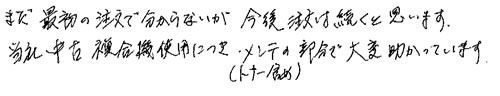 まだ最初の注文で分からないが今後注文は続くと思います.
当社中古複合機使用につき.メンテの部分で大変助かっています.
(トナー含め)